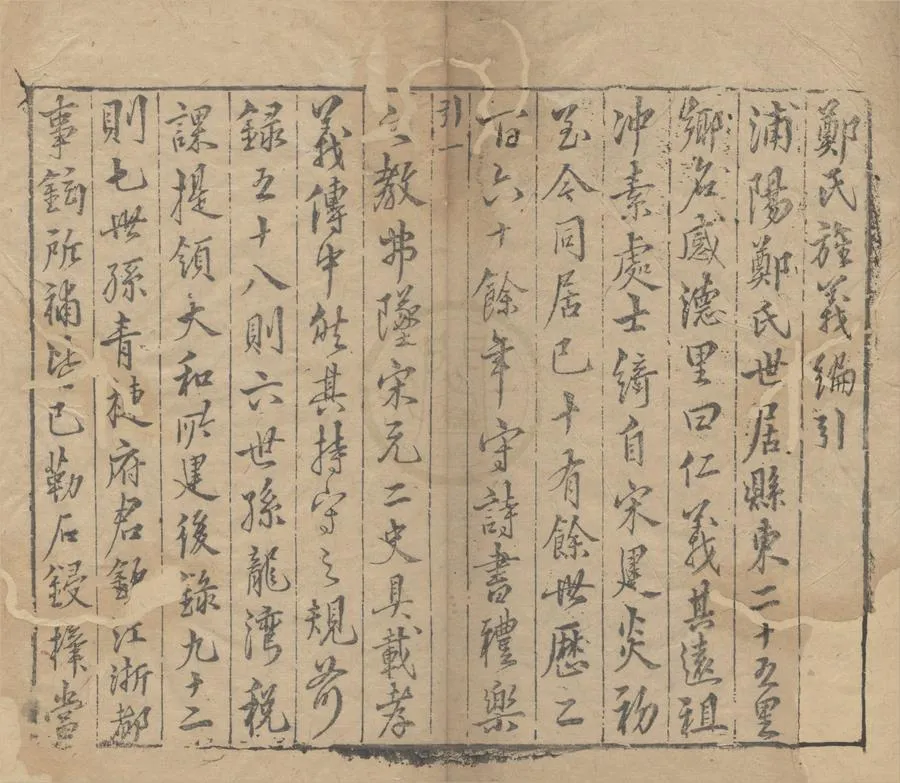 鄭氏旌義編引
浦陽鄭氏世居縣東二十五里
鄉名感德里曰仁義其遠祖
冲素處士綺自宋建炎初
至今同居已十有餘世歷二
百六十餘年守詩書禮樂
引一
之教弗墜宋元二史具載孝
義傳中然其持守之規前
錄五十八則六世孫龍灣稅
課提領大和所建後錄九十二
則七世孫青槤府君鉉江浙都
事鉉所補皆已勒石鋟梓當